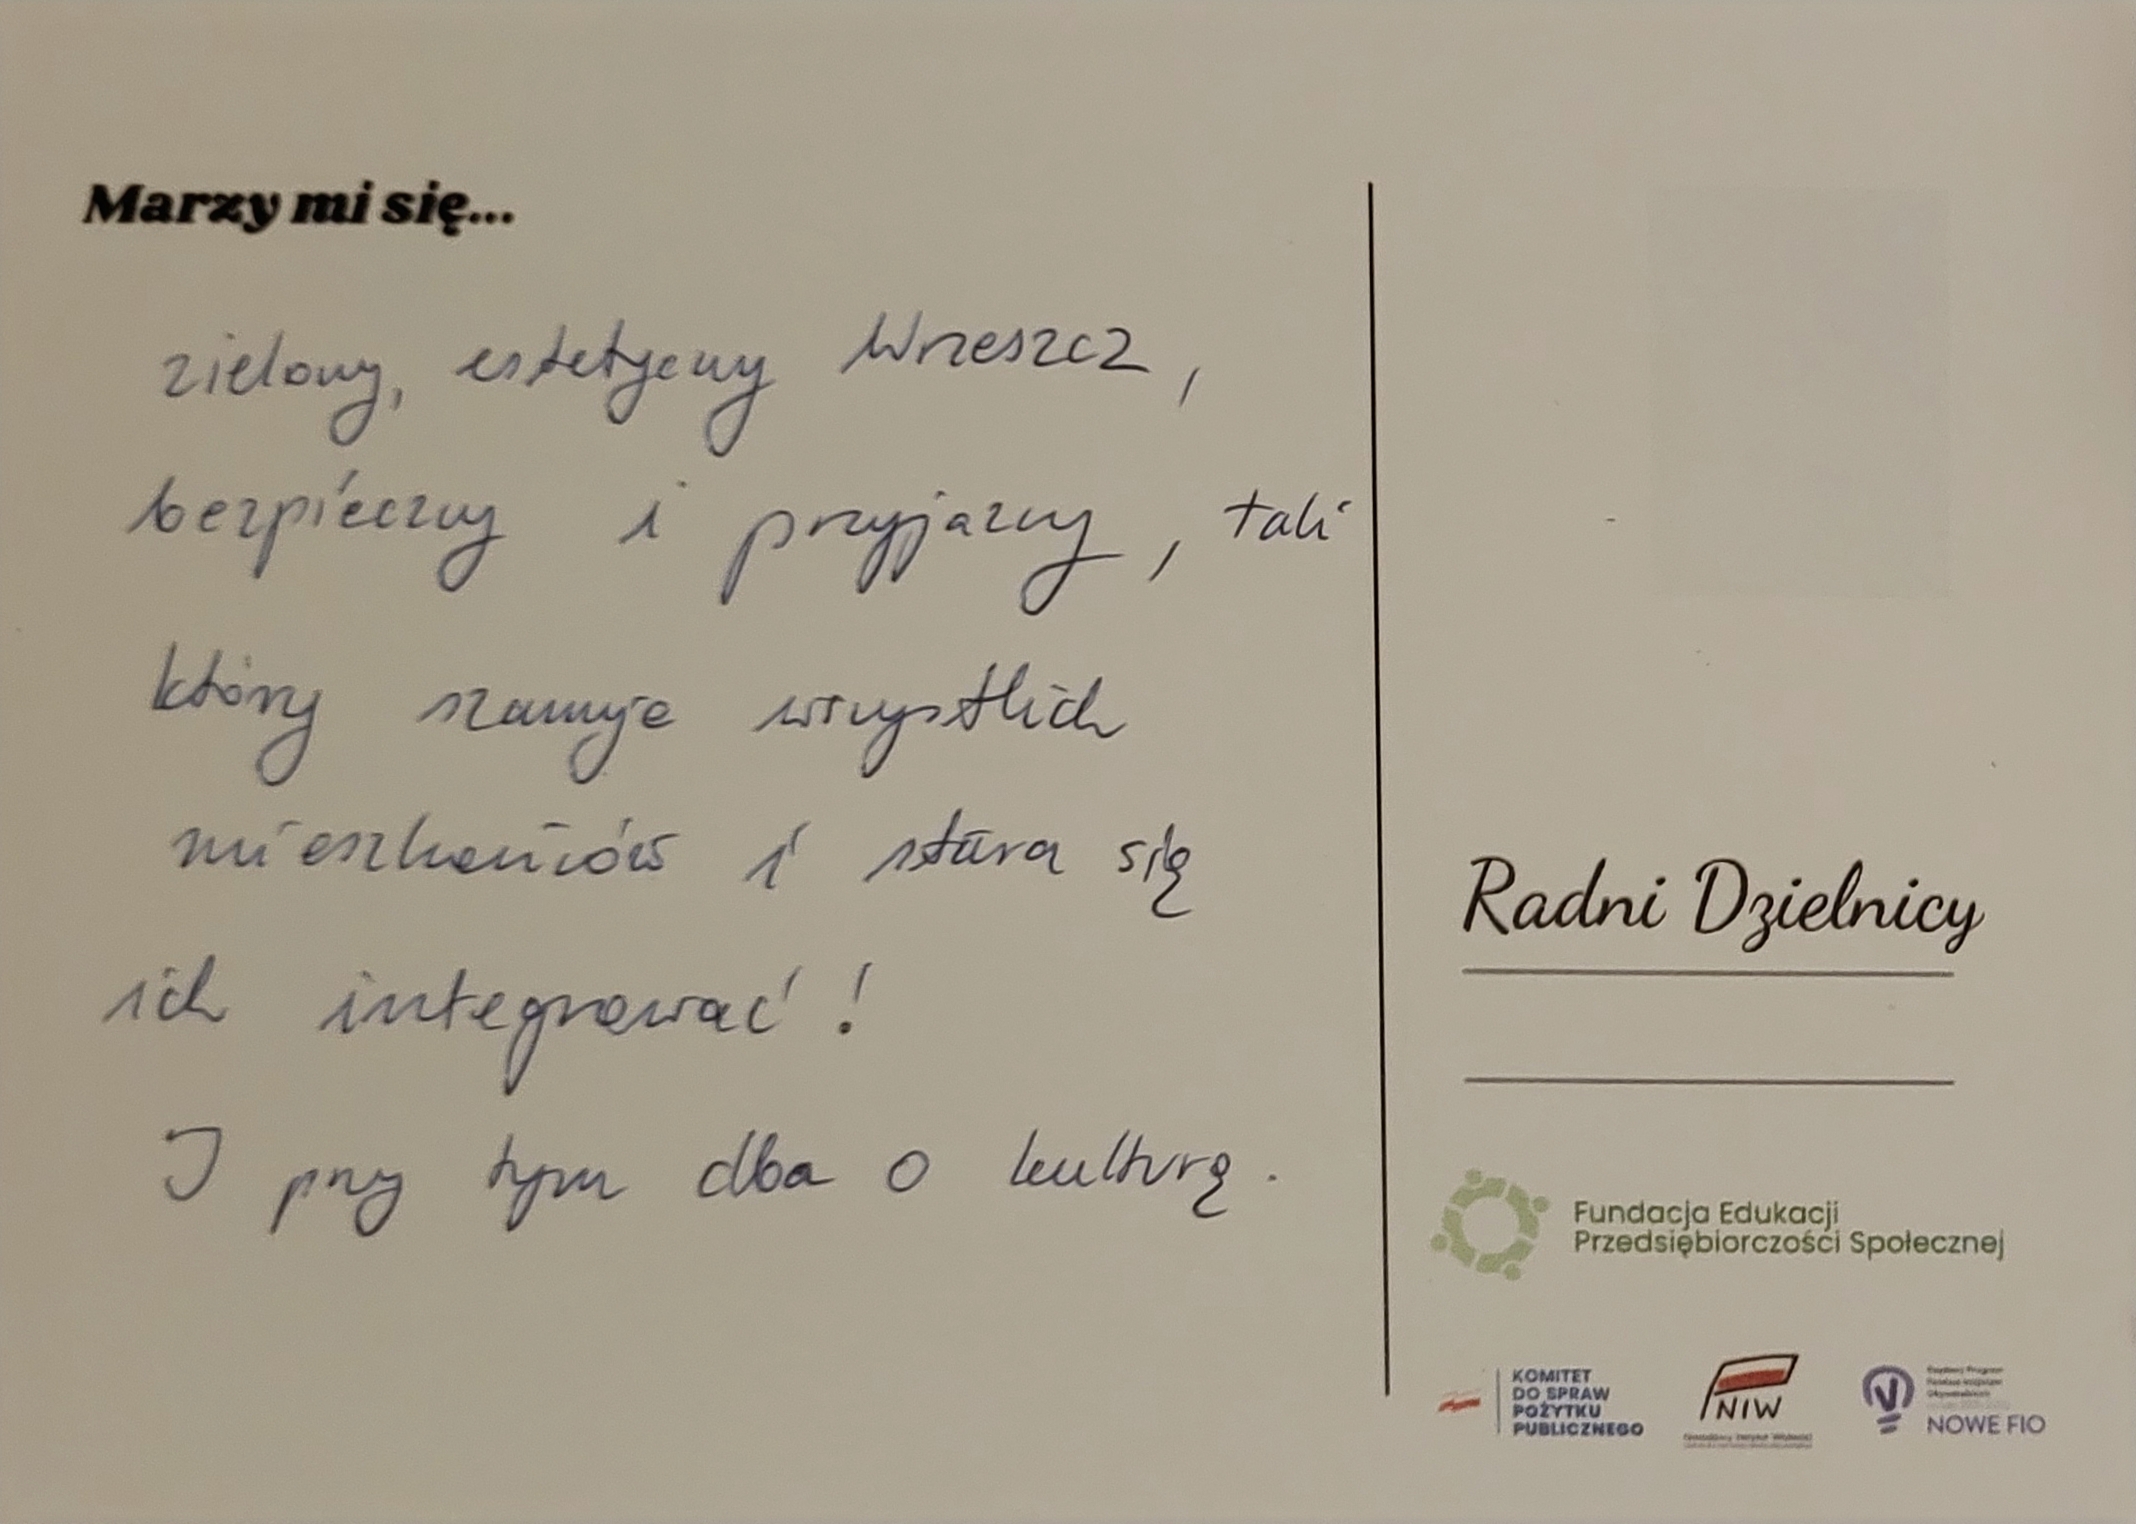 Marzy mi się...
zielony, estetyczny Wrzeszcz,
bezpieczny i przyjazny, taki
który szanuje wszystkich
mieszkańców i stara się
ich integrować!
I przy tym dba o kulturę.
Radni Dzielnicy
Fundacja Edukacji
Przedsiębiorczości Społecznej
KOMITET
DO SPRAW
POŻYTKU
PUBLICZNEGO
NIW
NOWE FIO